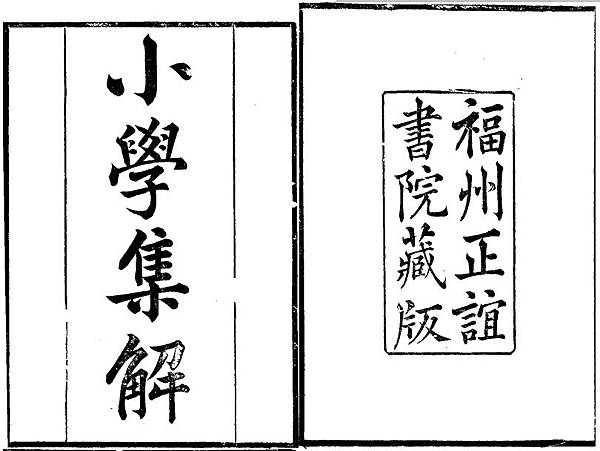 福州正誼
書院藏版
小學集解